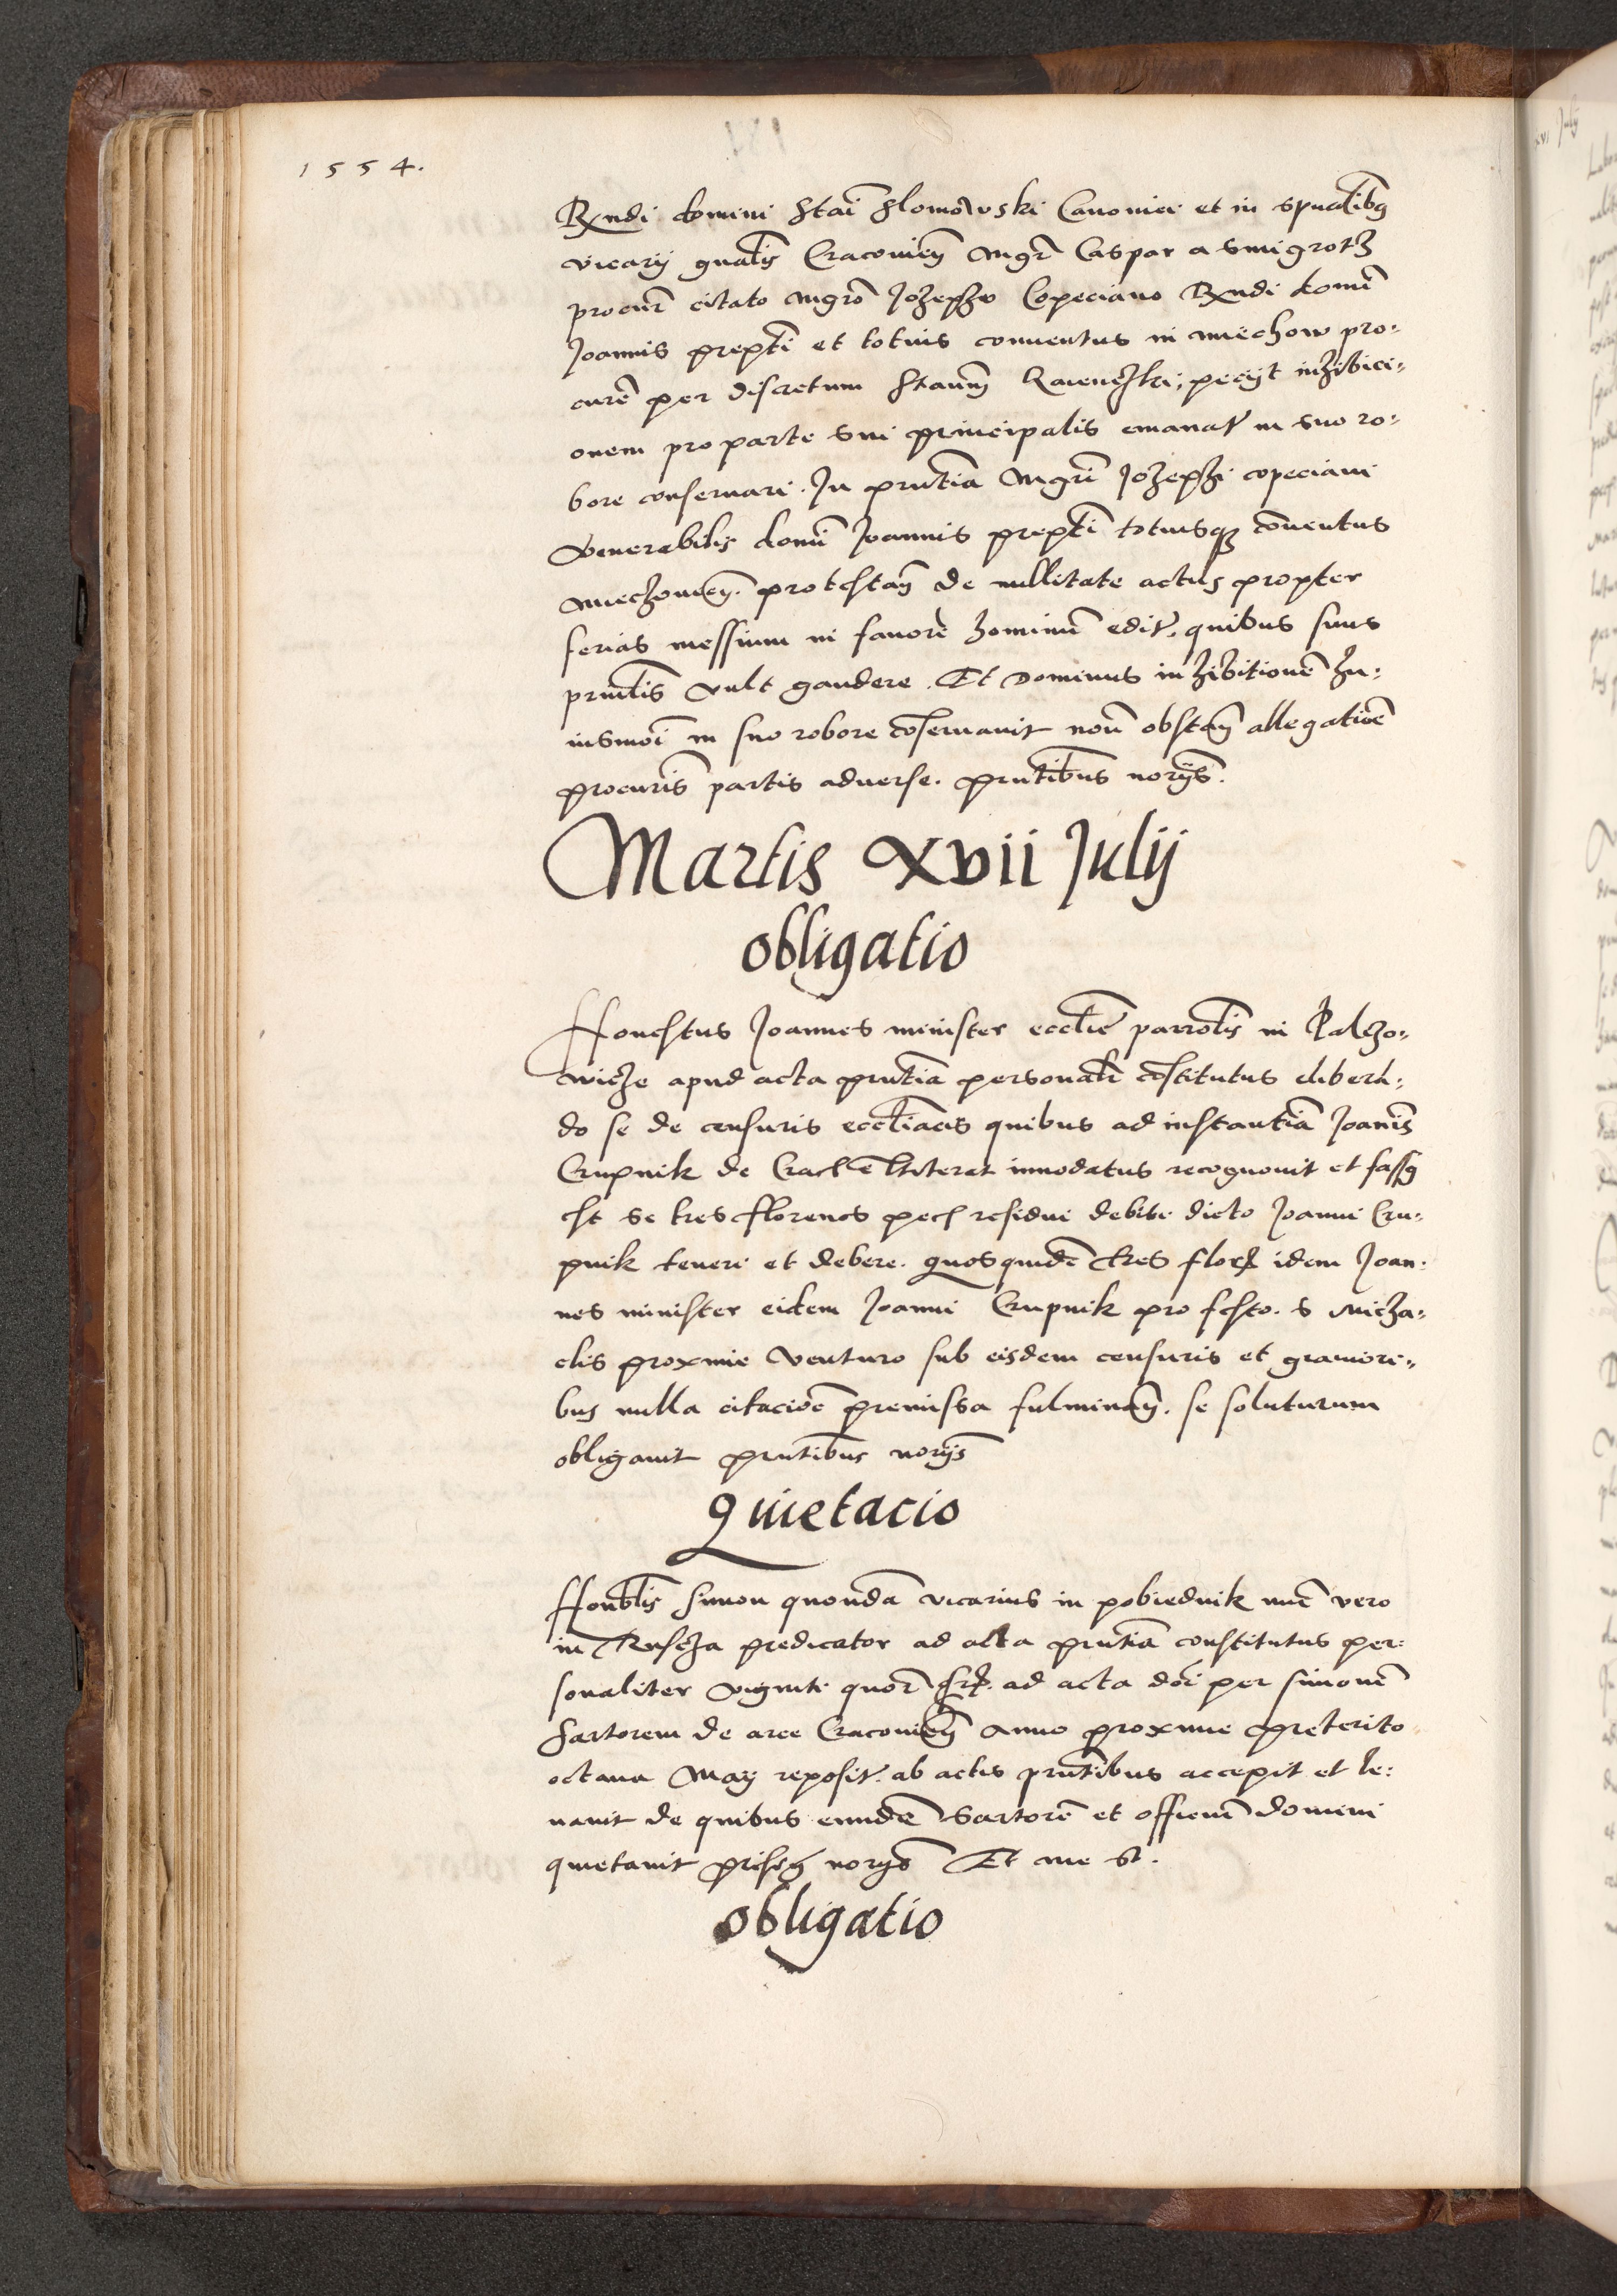 1554.
Rndi domini Stai Slomowski Canonici et in spualibq
vicarij gnalis Cracovien Mgr Caspar a Smigrotz
procur citato Mgro Jozepho Copeciano Rndi domi
Joannis prepti et totius conventus in miechow pro:
cure per discretum Staum petijt inhibici:
onem pro parte sui principalis emanat in suo ro:
bore conservari. In pntia Mgri Jozephi copeciani
Venerabilis domi Joannis prepti totiusq conventus
Miechovien. protestan de nullitate actus propter
ferias messium in favore hominu edit. quibus suus
prinlis vult gaudere. Et Dominus inhibitione hu:
iusmoi in suo robore coservavit non obstan allegatioe
procuris partis adverse. pntibus norijs.
Martis xvii Julij
obligatio
Honestus Joannes minister ecclie parrolis in Palczo:
wicze apud acta pntia personali costitutus libera:
do se de censuris eccliacis quibus ad instantia Joanis
Crupnik de extiterat innodatus recognovit et fassq
est se tres florenos pecl residui debiti dicto Joanni Cru:
pnik teneri et debere. quos quide tres flor idem Joan:
nes minister eidem Joanni Crupnik pro festo. s Micha:
elis proxime venturo sub eisdem censuris et graviori:
bus nulla citacioe premissa fulminan. se soluturum
obligavit pntibus norijs
Quietacio
Honblis Simon quonda vicarius in pobiednik nuc vero
in Ruscza predicator ad acta pntia constitutus per:
sonaliter viginti quor ad acta doi per simone
Sartorem de arce Cracovien Anno proxime preterito
octava Maij reposit. ab actis pntibus accepit et le:
vavit de quibus eunde Sartore et officiu domini
quietavit norijs Et me st.
obligatio